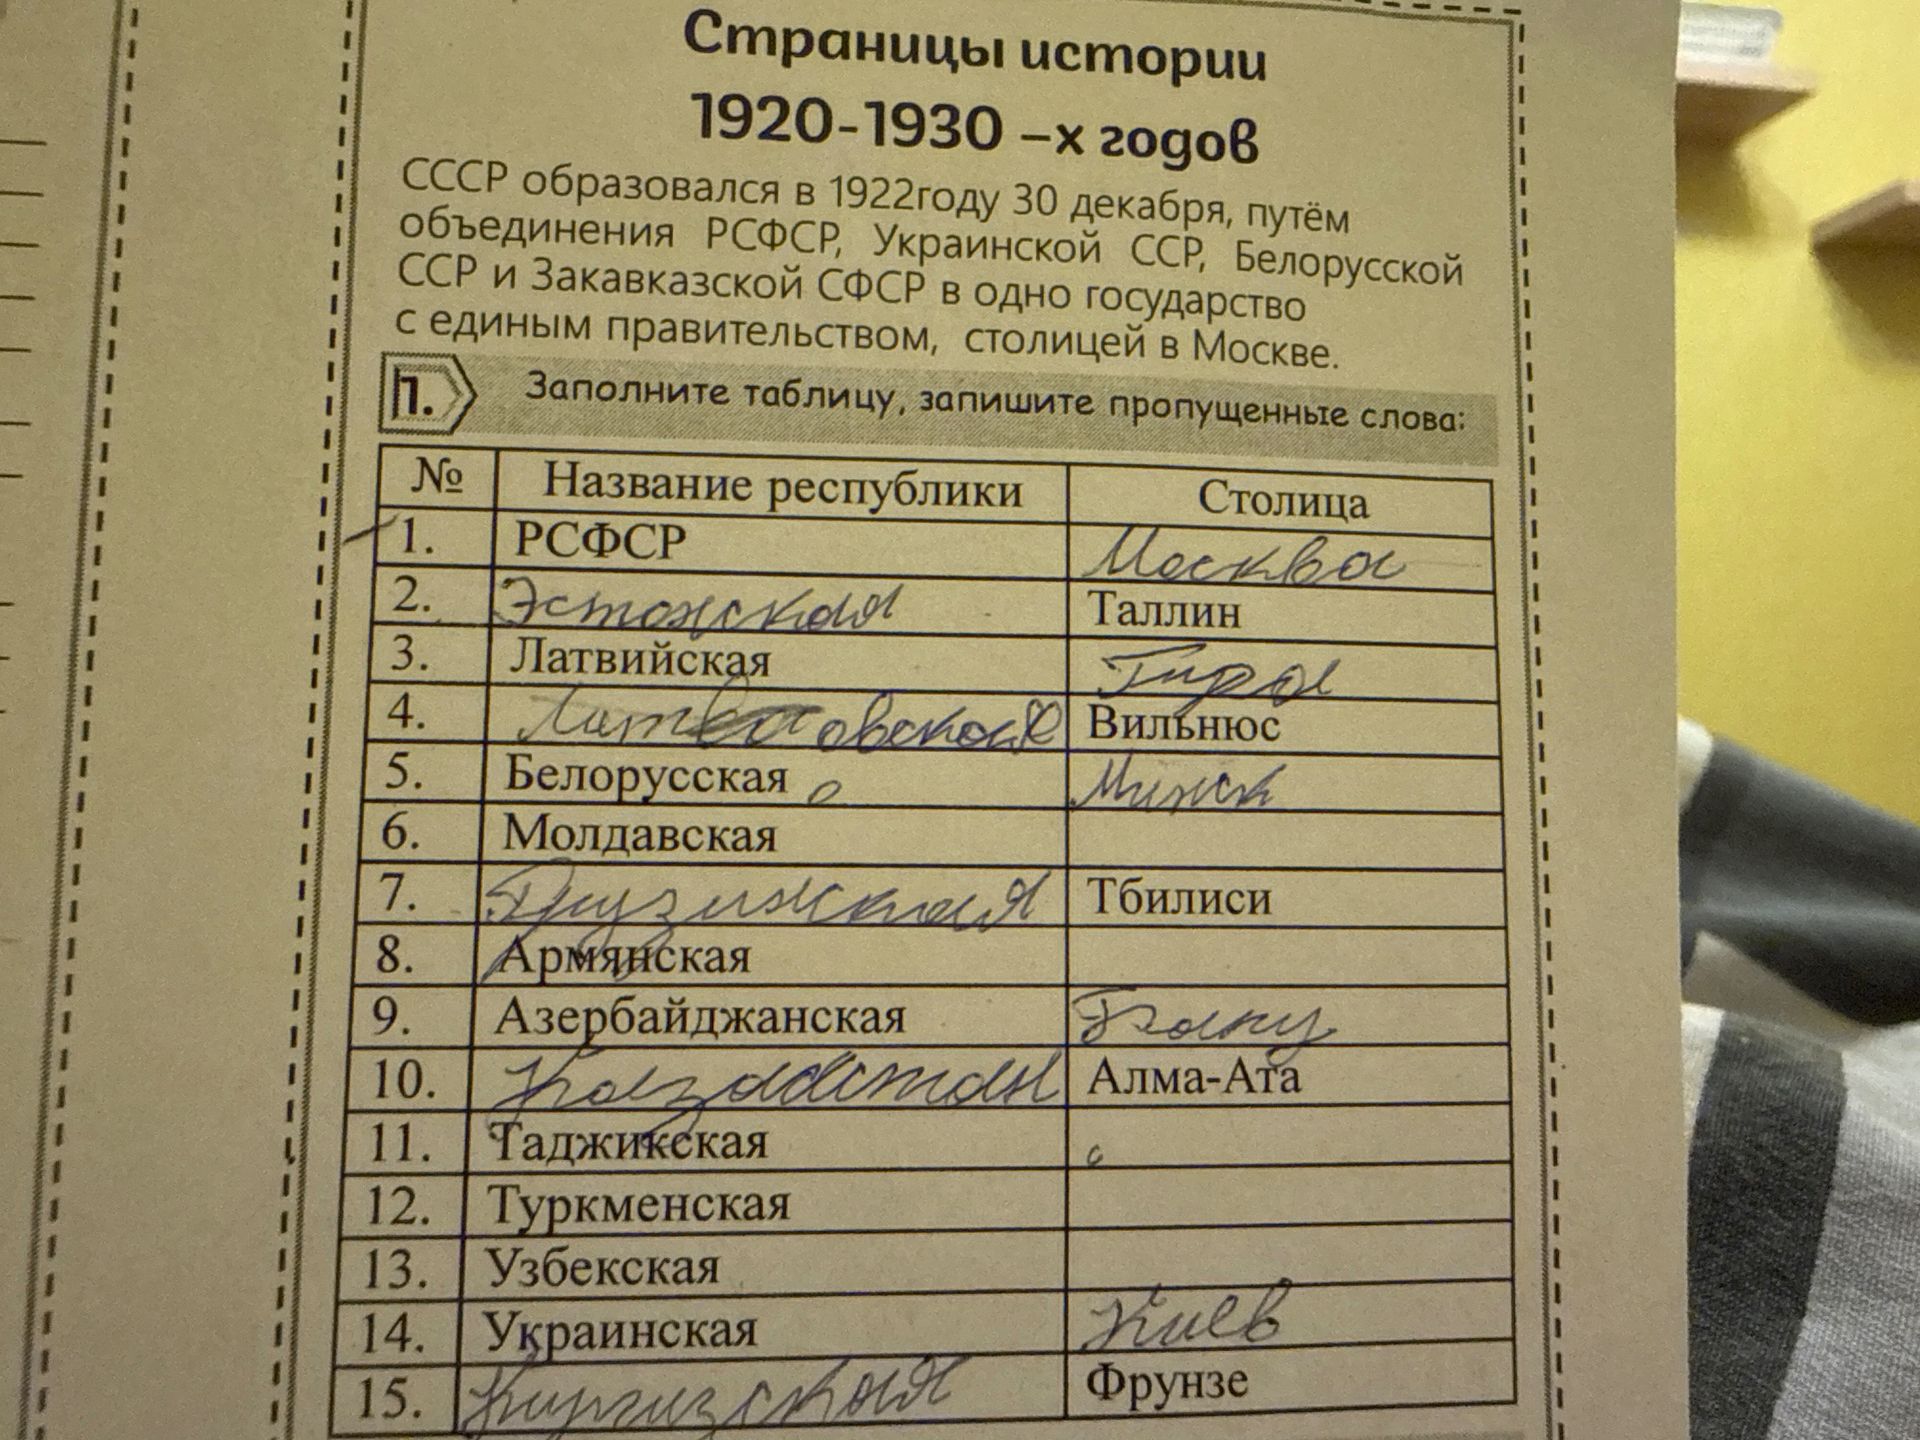 Страницы истории
1920-1930 –х годов
СССР образовался в 1922году 30 декабря, путём
объединения РСФСР, Украинской ССР, Белорусской
ССР и Закавказской СФСР в одно государство
с единым правительством, столицей в Москве.
1. Заполните таблицу, запишите пропущенные слова:
№ Название республики Столица
1. РСФСР Москва
2. Эстонская Таллин
3. Латвийская
4. Вильнюс
5. Белорусская Минск
6. Молдавская
7. Грузинская Тбилиси
8. Армянская
9. Азербайджанская Баку
10. Алма-Ата
11. Таджикская
12. Туркменская
13. Узбекская
14. Украинская Киев
15. Киргизская Фрунзе